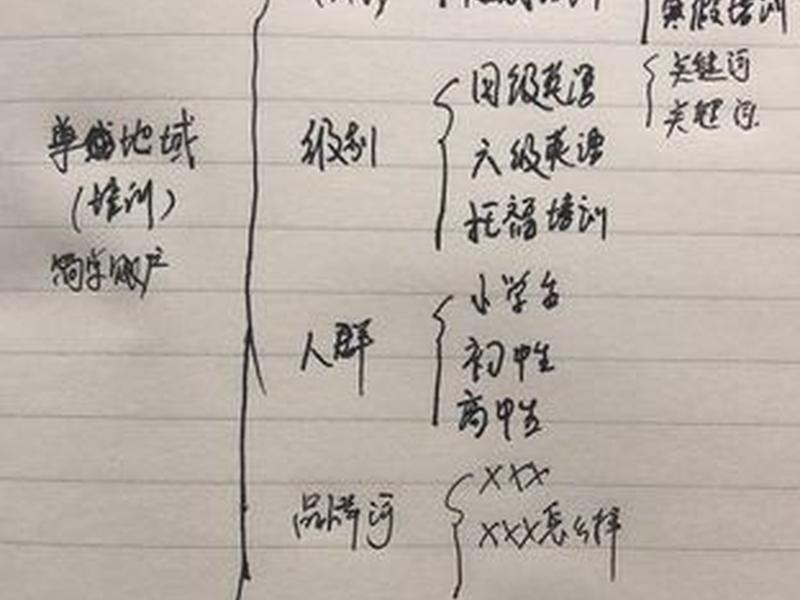 寒假培训
关键词
关键词
单一地域
(培训)
简单账户
级别
四级英语
六级英语
托福培训
人群
小学生
初中生
高中生
品牌词
XXX
XXX怎么样